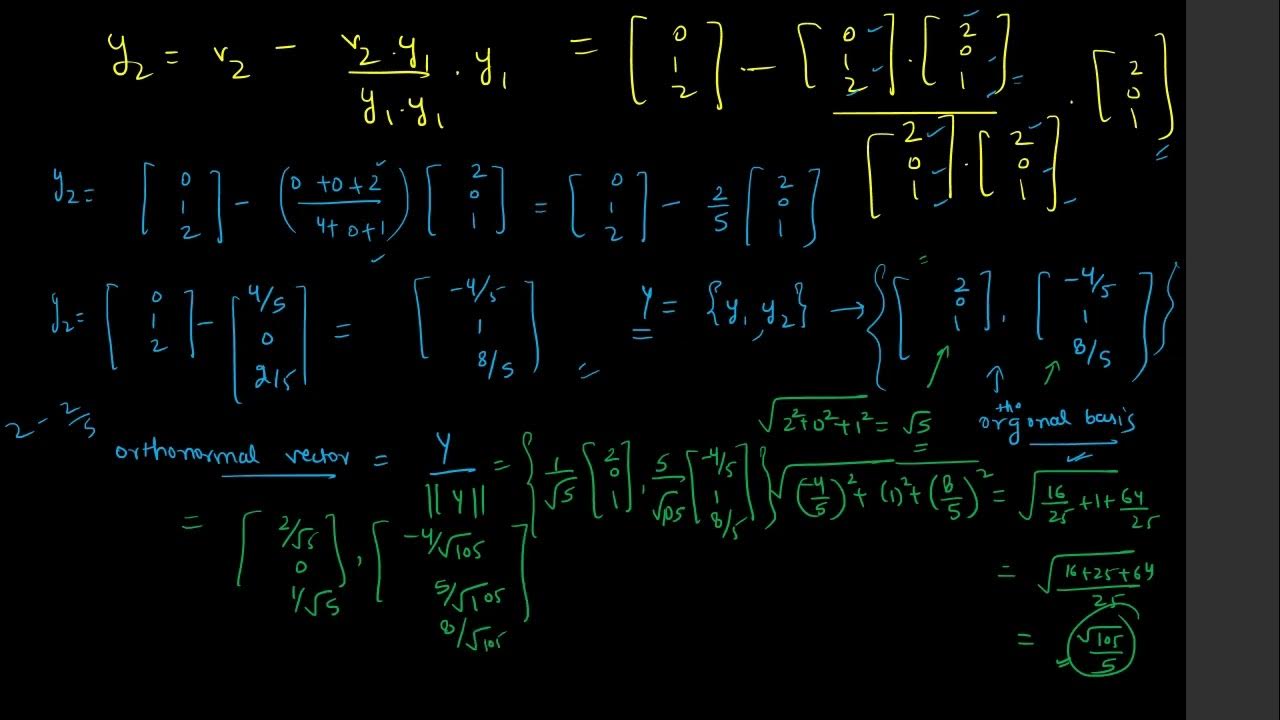 y₂ = v₂ − (v₂·y₁)/(y₁·y₁) · y₁ = [0 1 2] − ([0 1 2]·[2 0 1])/([2 0 1]·[2 0 1]) · [2 0 1]
y₂ = [0 1 2] − ((0+0+2)/(4+0+1)) [2 0 1] = [0 1 2] − 2/5 [2 0 1]
y₂ = [0 1 2] − [4/5 0 2/5] = [-4/5 1 8/5]
Y = {y₁, y₂} → {[2 0 1], [-4/5 1 8/5]}
2 − 2/5
√(2²+0²+1²) = √5
orthogonal basis
orthonormal vector = Y/||Y|| = {1/√5 [2 0 1], 5/√105 [-4/5 1 8/5]}
√((-4/5)² + (1)² + (8/5)²) = √(16/25 + 1 + 64/25)
= [2/√5 0 1/√5], [-4/√105 5/√105 8/√105]
= √((16+25+64)/25)
= √105/5